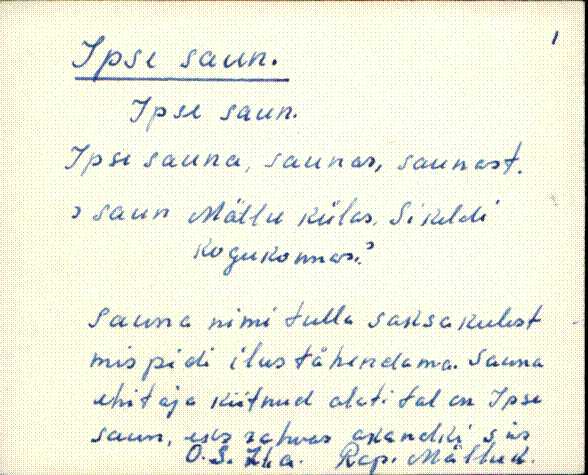 1
Ipse saun.
Ipse saun.
Ipse sauna, saunas, saunast.
saun Mällu külas, Sikeldi
kogukonnas.
Sauna nimi tulla saksakeelest
mis pidi ilus tähendama. Sauna
ehitaja kiitnud alati tal on Ipse
saun, eks rahvas akandki siis
O. S. Rap. Mällu k.